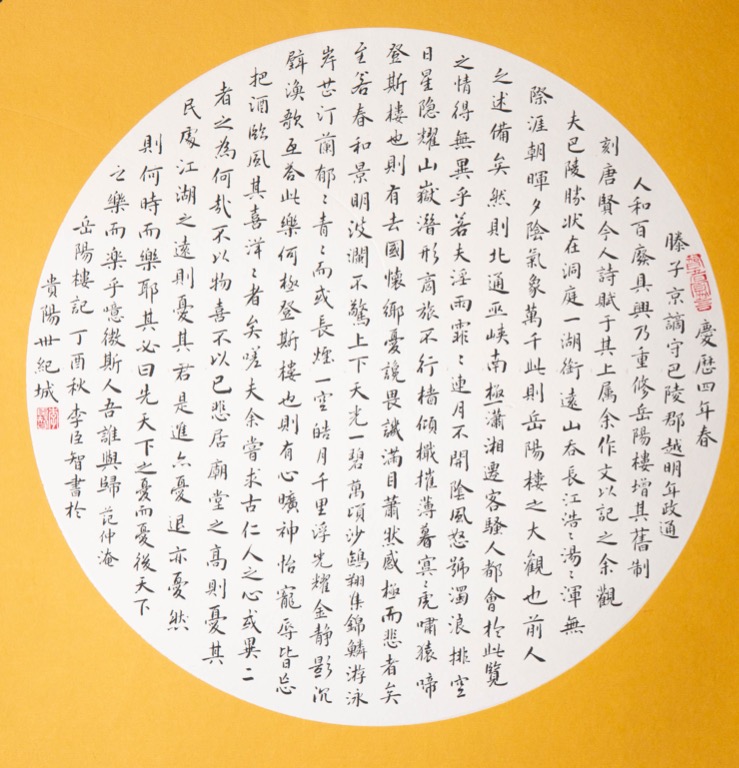 慶歷四年春
滕子京謫守巴陵郡越明年政通
人和百廢具興乃重修岳陽樓增其舊制
刻唐賢今人詩賦于其上属余作文以記之余觀
夫巴陵勝狀在洞庭一湖銜遠山吞長江浩〻湯〻渾無
際涯朝暉夕陰氣象萬千此則岳陽樓之大觀也前人
之述備矣然則北通巫峽南極瀟湘遷客騷人都會於此覽
之情得無異乎若夫淫雨霏〻連月不開陰風怒號濁浪排空
日星隐耀山嶽潛形商旅不行檣傾檝摧薄暮冥〻虎嘯猿啼
登斯樓也則有去國懷鄉憂讒畏譏滿目蕭然感極而悲者矣
至若春和景明波瀾不驚上下天光一碧萬頃沙鷗翔集錦鱗游泳
岸芷汀蘭郁〻青〻而或長煙一空皓月千里浮光耀金靜影沉
璧漁歌互答此樂何極登斯樓也則有心曠神怡寵辱皆忘
把酒臨風其喜洋〻者矣嗟夫余嘗求古仁人之心或異二
者之為何哉不以物喜不以已悲居廟堂之高則憂其
民處江湖之遠則憂其君是進亦憂退亦憂然
則何時而樂耶其必曰先天下之憂而憂後天下
之樂而楽乎噫微斯人吾誰與歸范仲淹
岳陽樓記丁酉秋李臣智書於
貴陽世紀城